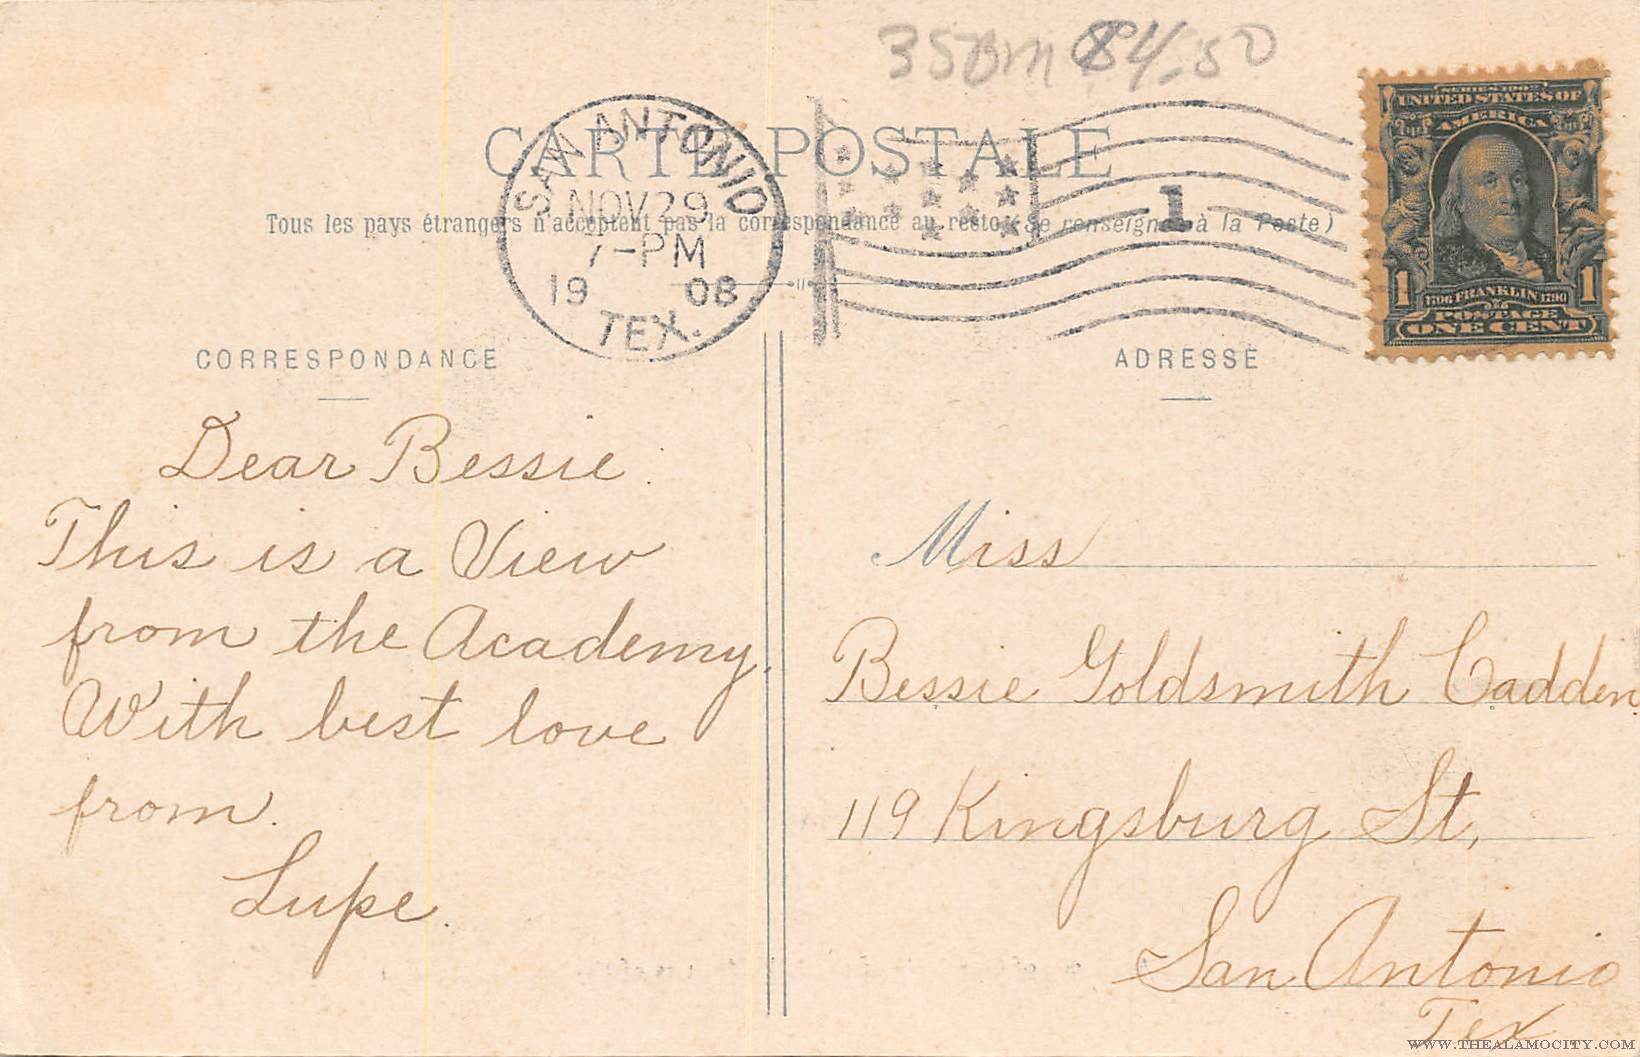 35 84.50
CARTE POSTALE
SAN ANTONIO
NOV 29
7-PM
1908
TEX.
1
SERIES 1902
UNITED STATES OF
AMERICA
1 1706 FRANKLIN 1790 1
POSTAGE
ONE CENT
Tous les pays étrangers n'acceptent pas la correspondance au recto (Se renseigner à la Poste)
CORRESPONDANCE
Dear Bessie:
This is a View
from the Academy.
With best love
from.
Lupe.
ADRESSE
Miss
Bessie Goldsmith Cadden
119 Kingsburg St,
San Antonio
Tex
WWW.THEALAMOCITY.COM